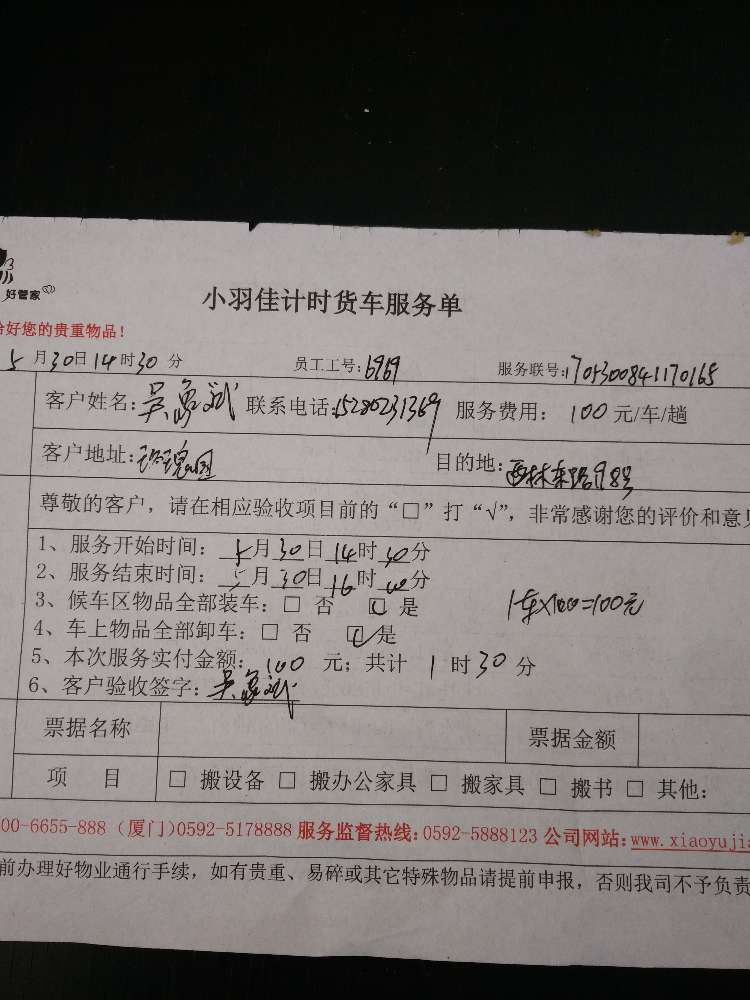 好管家
小羽佳计时货车服务单
好您的贵重物品！
5月30日14时30分 员工工号：6969 服务联号：1705300841170165
客户姓名：吴勇斌 联系电话：15280231369 服务费用： 100元/车/趟
客户地址：玫瑰园 目的地：西林东路98号
尊敬的客户，请在相应验收项目前的“□”打“√”，非常感谢您的评价和意见
1、服务开始时间：5月30日14时30分
2、服务结束时间：5月30日16时00分
3、候车区物品全部装车：□ 否 ☑ 是 1车×100=100元
4、车上物品全部卸车：□ 否 ☑ 是
5、本次服务实付金额：100 元；共计 1 时30分
6、客户验收签字：吴勇斌
票据名称 票据金额
项 目 □ 搬设备 □ 搬办公家具 □ 搬家具 □ 搬书 □ 其他：
00-6655-888（厦门）0592-5178888 服务监督热线：0592-5888123 公司网站：www.xiaoyujia
前办理好物业通行手续，如有贵重、易碎或其它特殊物品请提前申报，否则我司不予负责